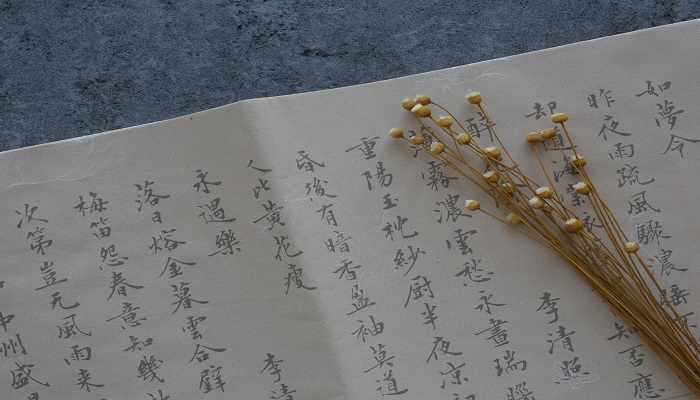 如夢令
昨夜雨疏風驟濃睡不
却道海棠 知否應
醉 李清照
薄霧濃雲愁永晝瑞腦
重陽玉枕紗厨半夜凉初
昏後有暗香盈袖莫道
人比黃花瘦
永遇樂 李清
落日熔金暮雲合璧
梅笛怨春意知幾許
次第豈无風雨来
中州盛